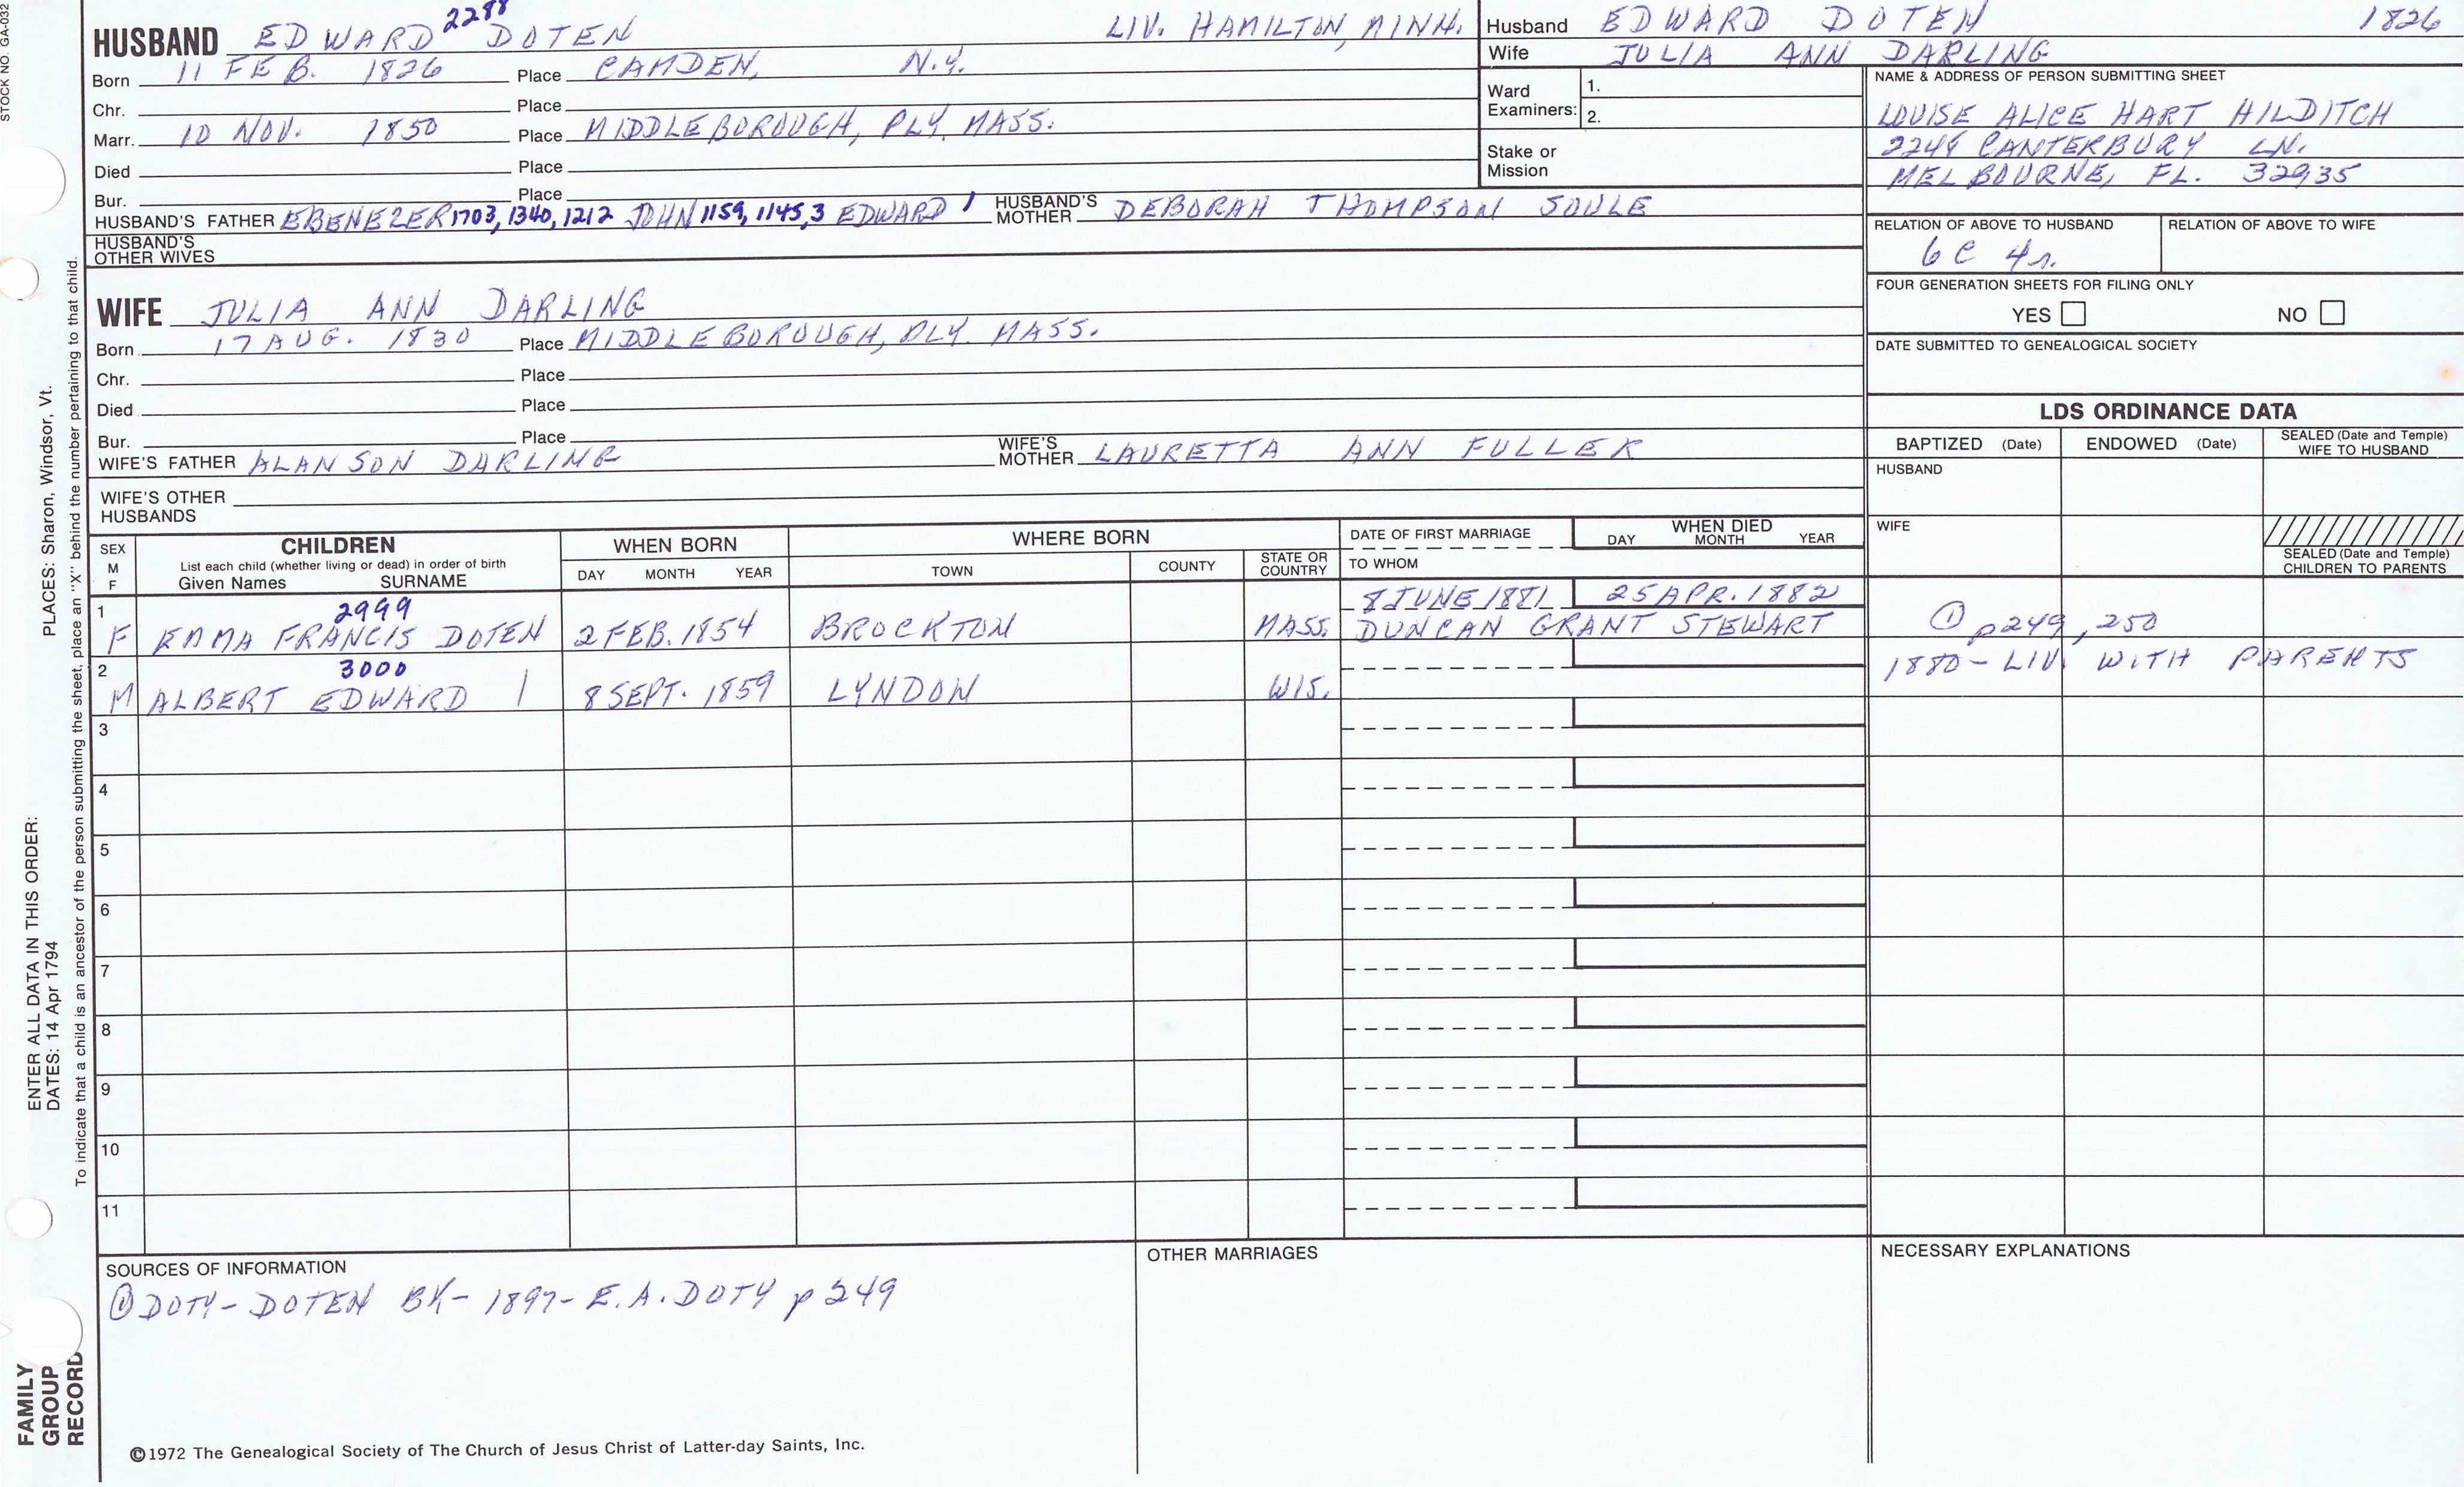 STOCK NO. GA-032
2288
HUSBAND EDWARD DOTEN LIV. HAMILTON, MINN.
Born 11 FEB. 1826 Place CAMDEN, N.Y.
Chr. Place
Marr. 10 NOV. 1850 Place MIDDLEBOROUGH, PLY. MASS.
Died Place
Bur. Place
HUSBAND'S FATHER EBENEZER 1703, 1340, 1212 JOHN 1159, 1145, 3 EDWARD 1 HUSBAND'S MOTHER DEBORAH THOMPSON SOULE
HUSBAND'S OTHER WIVES
WIFE JULIA ANN DARLING
Born 17 AUG. 1830 Place MIDDLEBOROUGH, PLY. MASS.
Chr. Place
Died Place
Bur. Place
WIFE'S FATHER ALANSON DARLING WIFE'S MOTHER LAURETTA ANN FULLER
WIFE'S OTHER HUSBANDS
Husband EDWARD DOTEN 1826
Wife JULIA ANN DARLING
Ward Examiners: 1.
2.
Stake or Mission
NAME & ADDRESS OF PERSON SUBMITTING SHEET
LOUISE ALICE HART HILDITCH
2248 CANTERBURY LN.
MELBOURNE, FL. 32935
RELATION OF ABOVE TO HUSBAND RELATION OF ABOVE TO WIFE
6C 4r.
FOUR GENERATION SHEETS FOR FILING ONLY
YES NO
DATE SUBMITTED TO GENEALOGICAL SOCIETY
LDS ORDINANCE DATA
BAPTIZED (Date) ENDOWED (Date) SEALED (Date and Temple) WIFE TO HUSBAND
HUSBAND
WIFE
SEALED (Date and Temple) CHILDREN TO PARENTS
SEX M F
CHILDREN
List each child (whether living or dead) in order of birth
Given Names SURNAME
WHEN BORN
DAY MONTH YEAR
WHERE BORN
TOWN COUNTY STATE OR COUNTRY
DATE OF FIRST MARRIAGE
TO WHOM
WHEN DIED
DAY MONTH YEAR
1 2999 8 JUNE 1881 25 APR. 1882
F EMMA FRANCIS DOTEN 2 FEB. 1854 BROCKTON MASS. DUNCAN GRANT STEWART ① p249, 250
2 3000 1880 - LIV. WITH PARENTS
M ALBERT EDWARD | 8 SEPT. 1859 LYNDON WIS.
3
4
5
6
7
8
9
10
11
SOURCES OF INFORMATION
① DOTY - DOTEN BK - 1897 - E.A. DOTY p 249
OTHER MARRIAGES
NECESSARY EXPLANATIONS
©1972 The Genealogical Society of The Church of Jesus Christ of Latter-day Saints, Inc.
FAMILY GROUP RECORD
ENTER ALL DATA IN THIS ORDER:
DATES: 14 Apr 1794 PLACES: Sharon, Windsor, Vt.
To indicate that a child is an ancestor of the person submitting the sheet, place an "X" behind the number pertaining to that child.